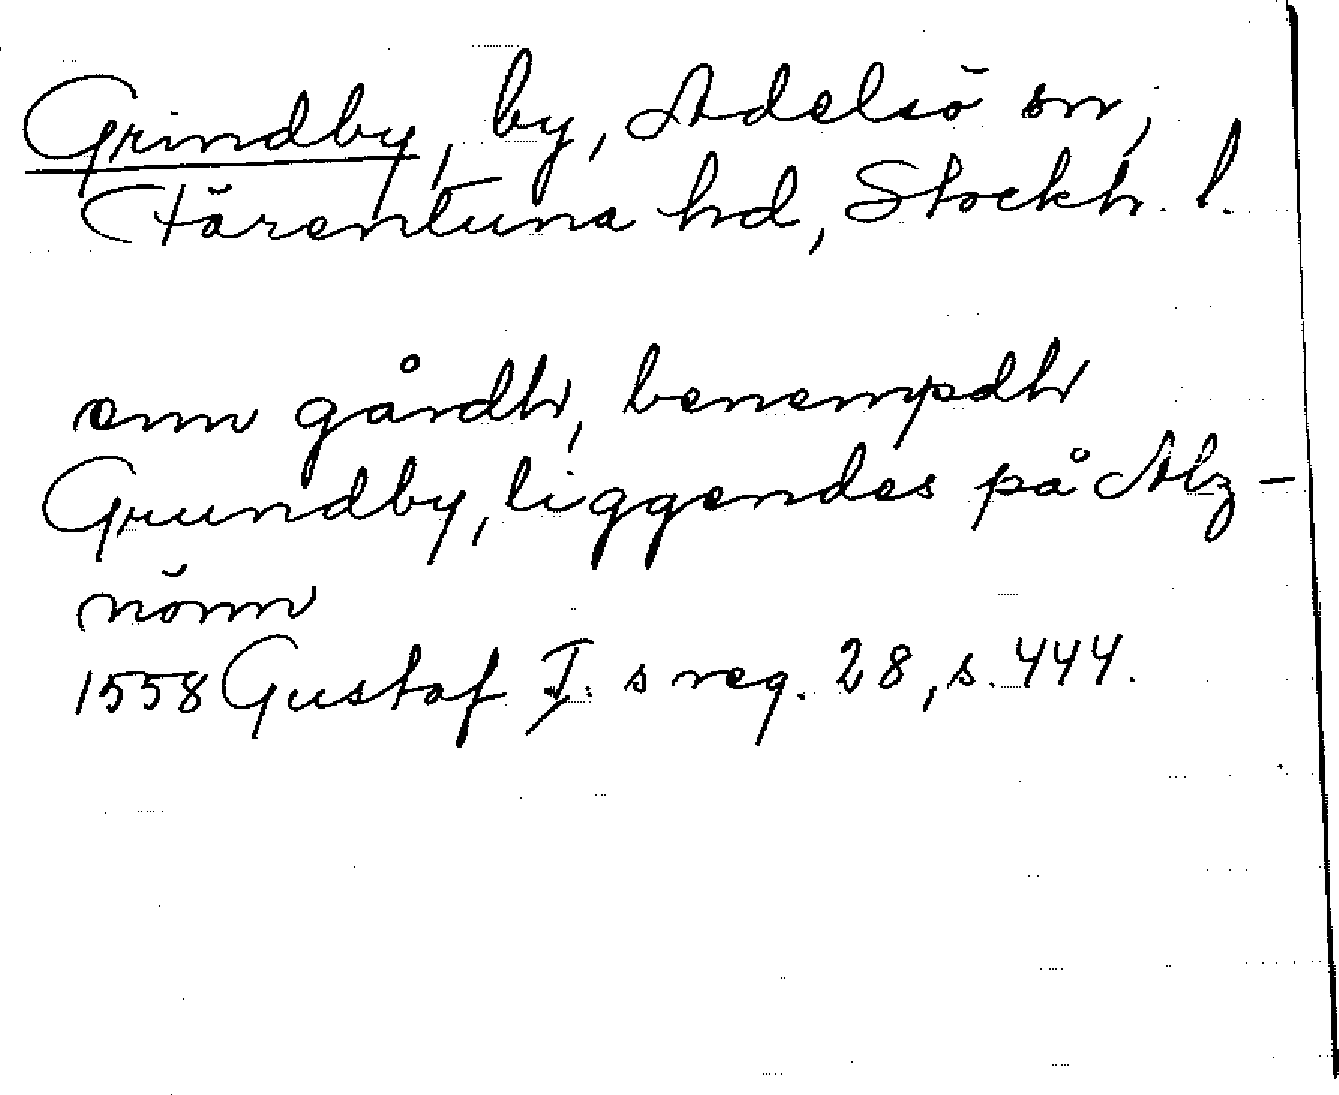 Grindby, by, Adelsö sn,
Färentuna hd, Stockh. l.
enn gårdh, benempdh
Grundby, liggendes på Alz-
nönn
1558 Gustaf I:s reg. 28, s. 444.